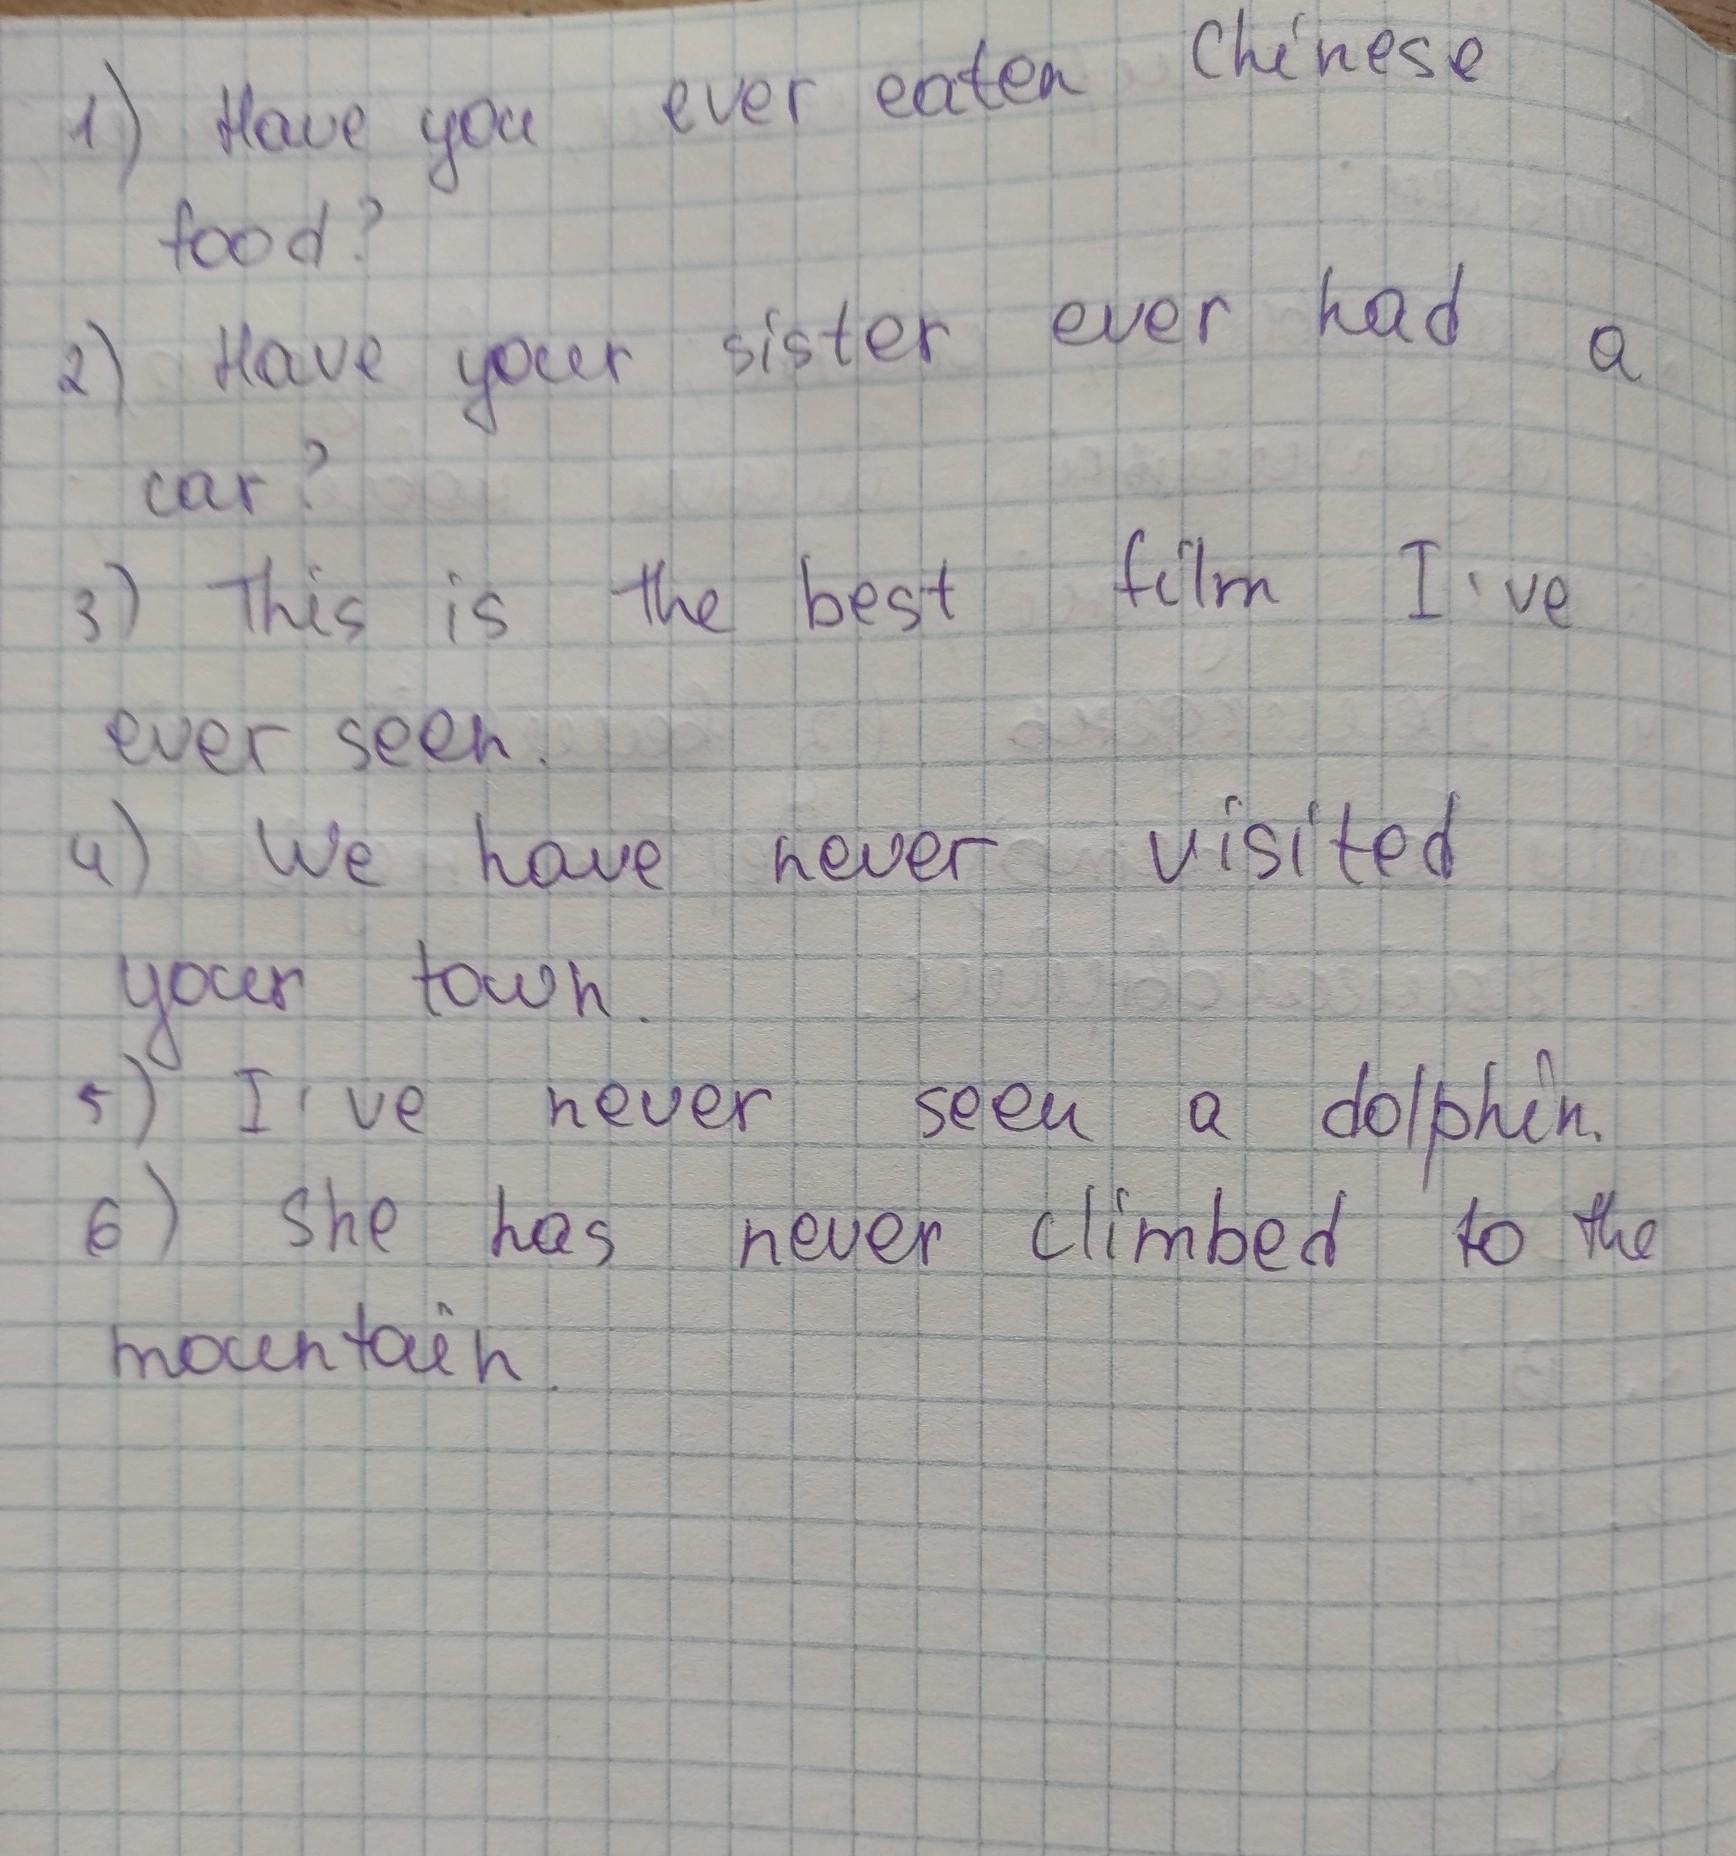 1) Have you ever eaten Chinese
food?
2) Have your sister ever had a
car?
3) This is the best film I've
ever seen.
4) We have never visited
your town.
5) I've never seen a dolphin.
6) She has never climbed to the
mountain.